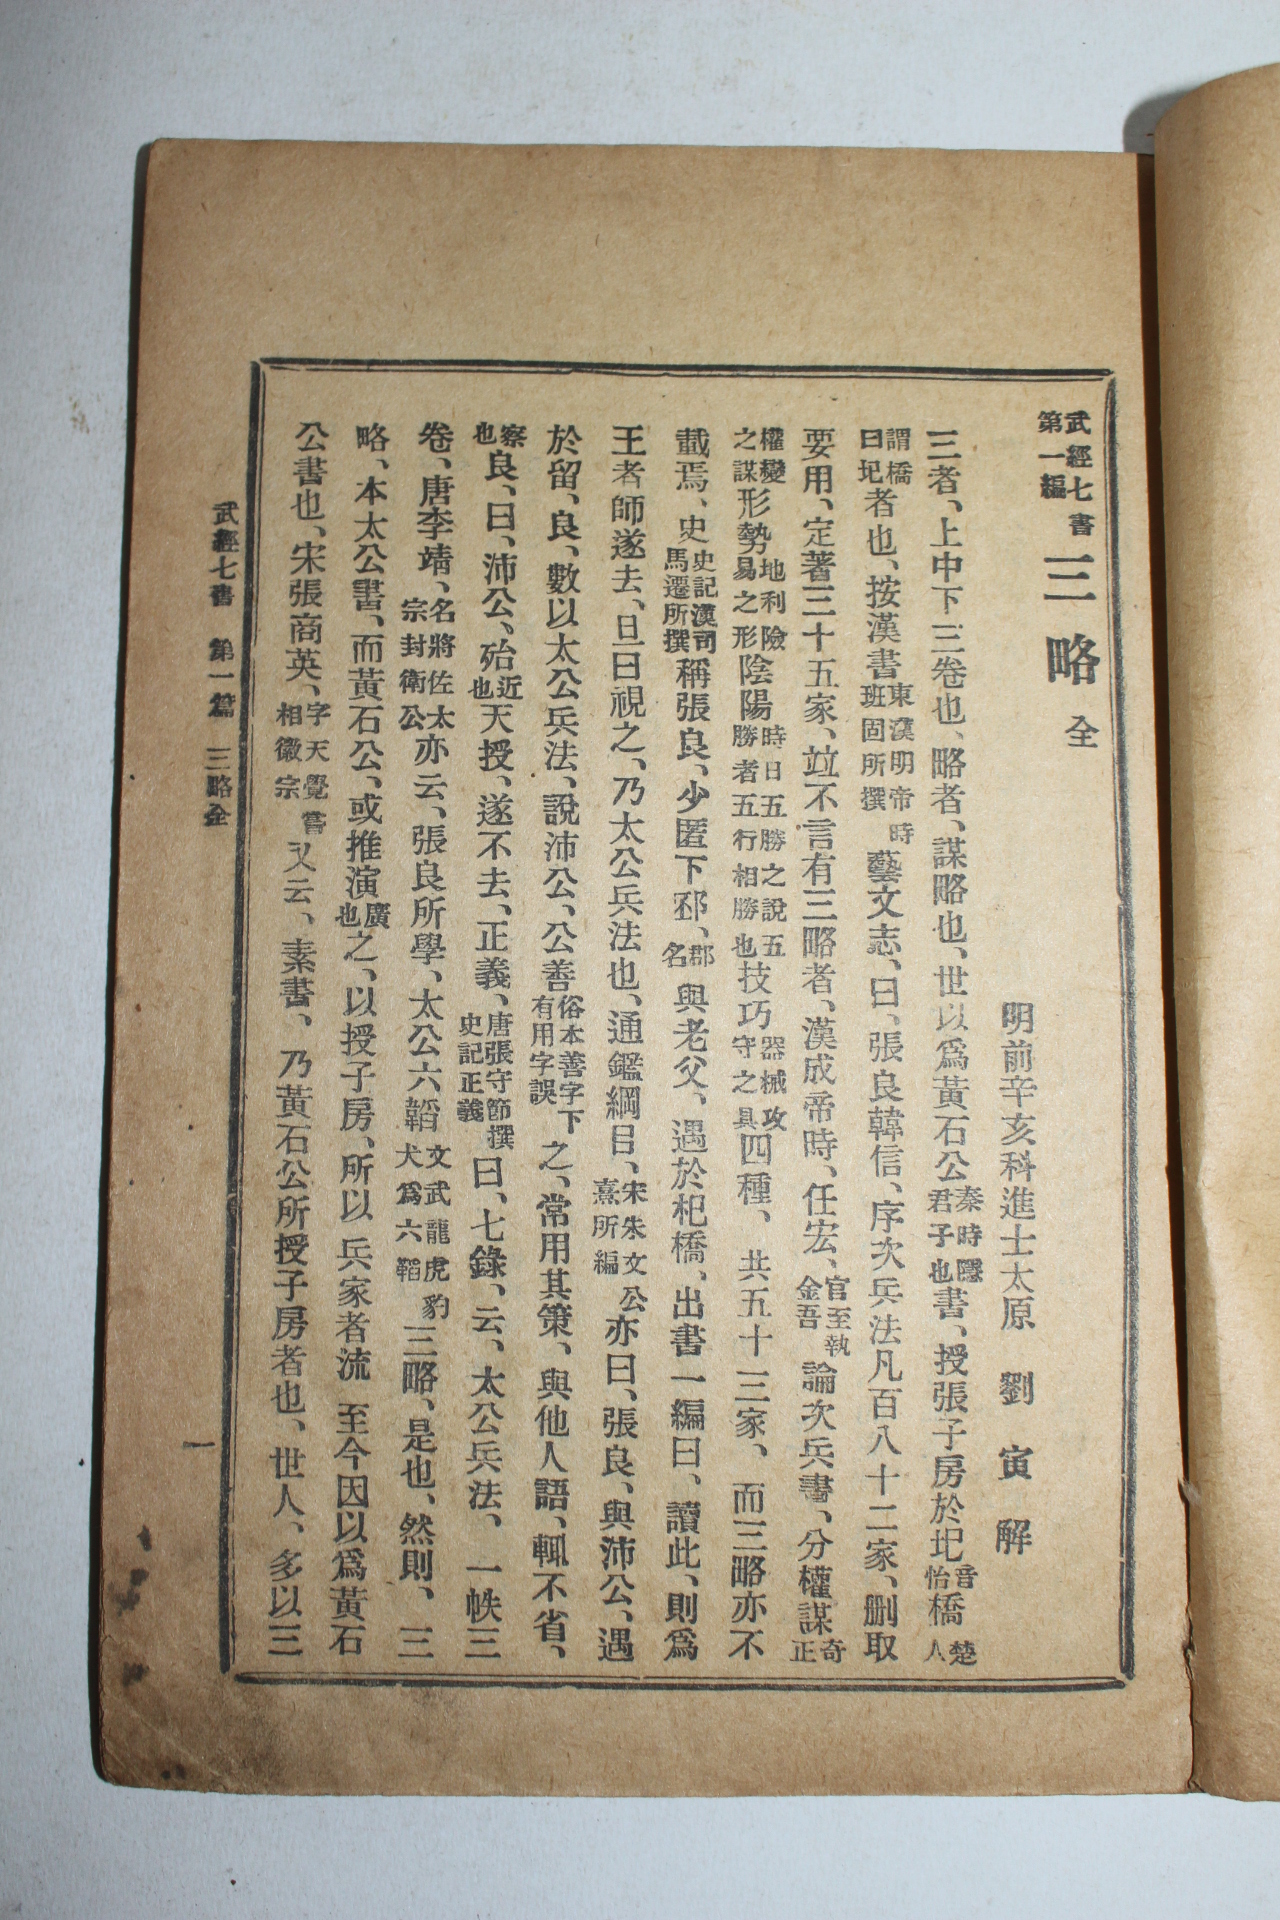 武經七書第一編 三略 全
明前辛亥科進士太原 劉寅 解
三者、上中下三卷也、略者、謀略也、世以爲黃石公秦時隱君子也書、授張子房於圯音怡橋楚人
謂橋曰圯者也、按漢書東漢明帝時班固所撰藝文志、曰、張良韓信、序次兵法凡百八十二家、删取
要用、定著三十五家、竝不言有三略者、漢成帝時、任宏、官至執金吾論次兵書、分權謀奇正
權變之謀形勢地利險易之形陰陽時日五勝之說五勝者五行相勝也技巧器械攻守之具四種、共五十三家、而三略亦不
載焉、史史記漢司馬遷所撰稱張良、少匿下邳、郡名與老父、遇於圯橋、出書一編曰、讀此、則爲
王者師遂去、旦日視之、乃太公兵法也、通鑑綱目、宋朱文公熹所編亦曰、張良、與沛公、遇
於留、良、數以太公兵法、說沛公、公善俗本善字下有用字誤之、常用其策、與他人語、輒不省、
察也良、曰、沛公、殆近也天授、遂不去、正義、唐張守節撰史記正義曰、七錄、云、太公兵法、一帙三
卷、唐李靖、名將佐太宗封衛公亦云、張良所學、太公六韜文武龍虎豹犬爲六韜三略、是也、然則、三
略、本太公書、而黃石公、或推演廣也之、以授子房、所以兵家者流 至今因以爲黃石
公書也、宋張商英、字天覺嘗相徽宗又云、素書、乃黃石公所授子房者也、世人、多以三
武經七書 第一篇 三略全
一